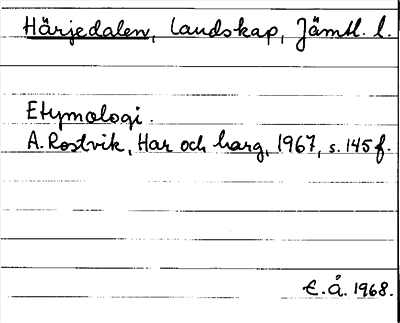 Härjedalen, landskap, Jämtl. l.
Etymologi.
A. Rostvik, Har och harg, 1967, s. 145 f.
E.Å. 1968.